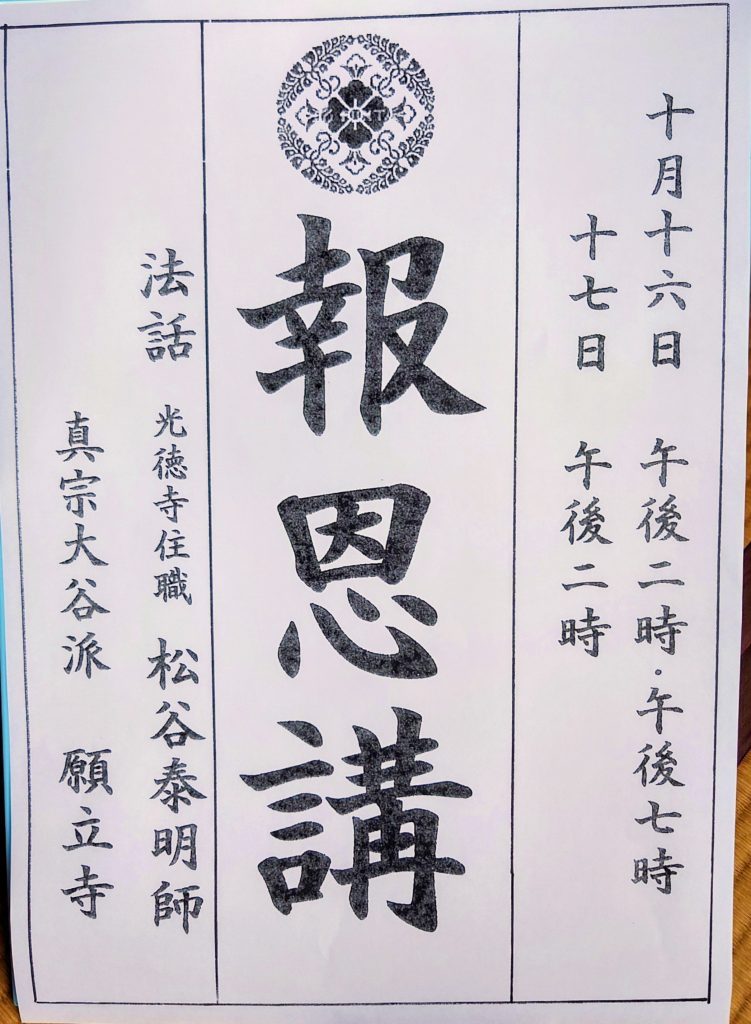 十月十六日 午後二時・午後七時
十七日 午後二時
報恩講
法話 光徳寺住職 松谷泰明師
真宗大谷派 願立寺